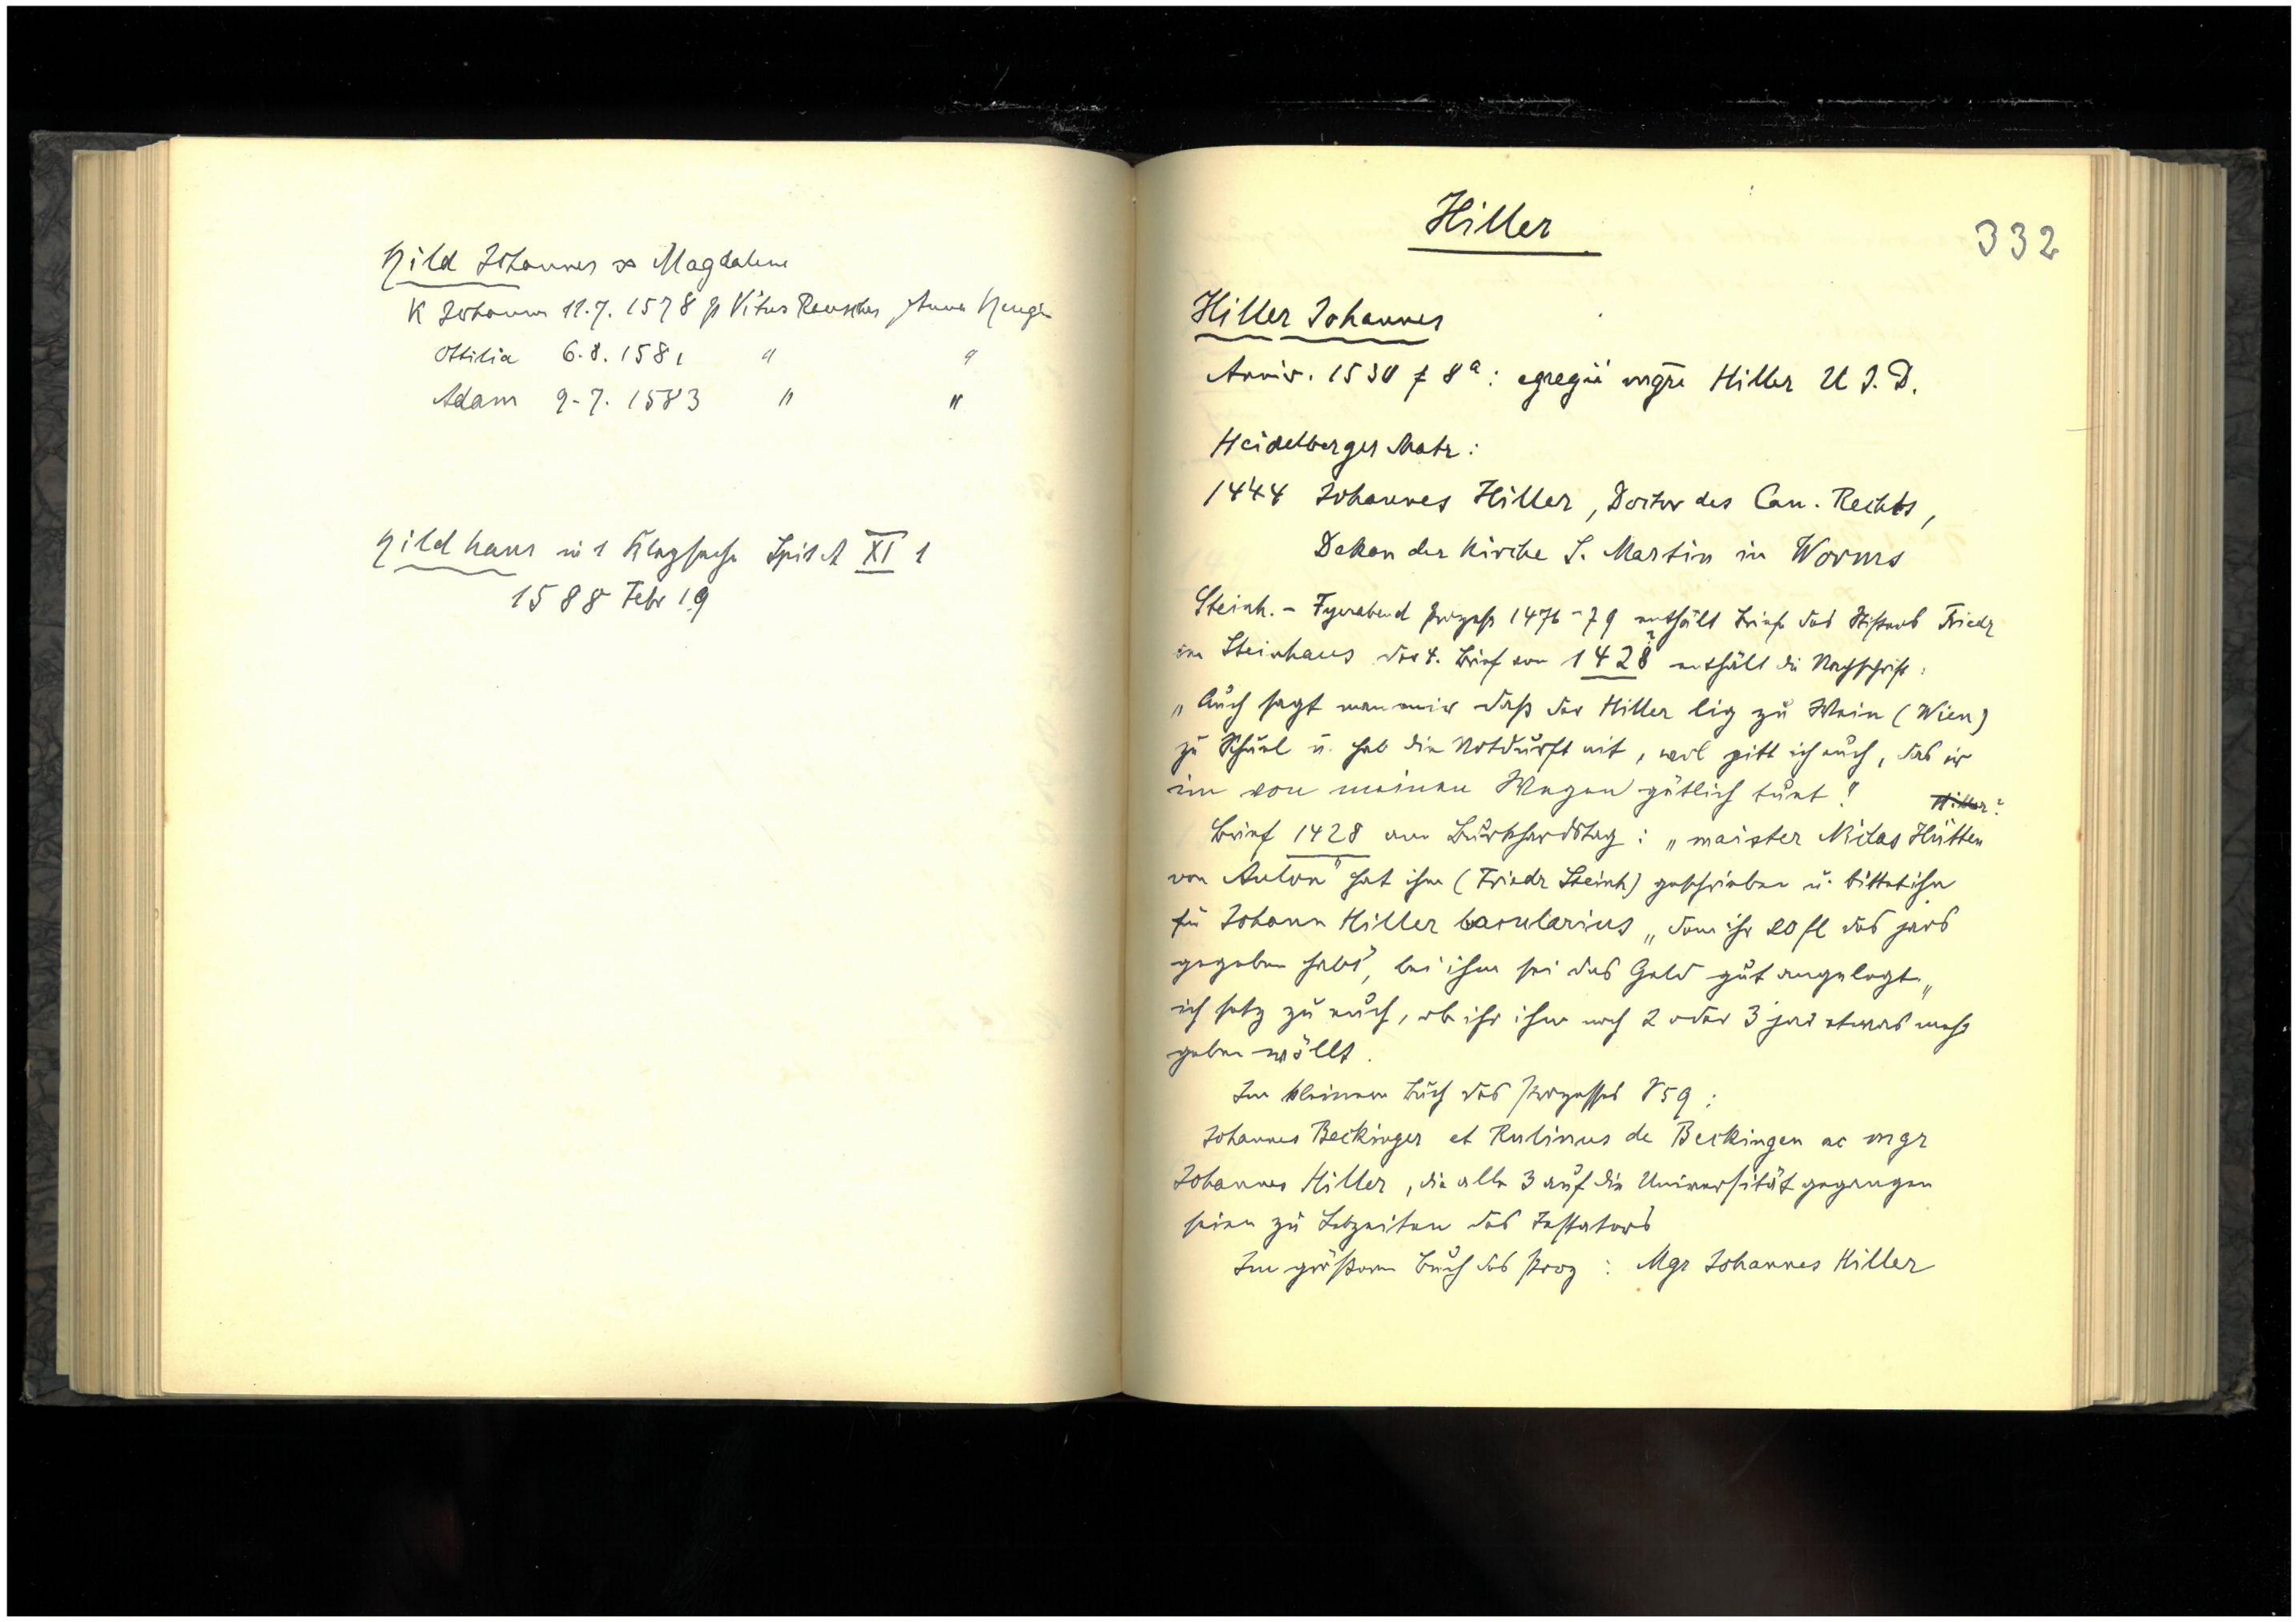 Hild Johannes ∞ Magdalene
K Johann 11.7.1578 p Vitus Reuscher Anna
Ottilia 6.8.1581 " "
Adam 9.7.1583 " "
Hild hans in 1 Klagsache Spit A XI 1
1588 Febr 19
Hiller
332
Hiller Johannes
Anniv. 1530 f 8a: egregii mgri Hiller U J. D.
Heidelberger Matr:
1444 Johannes Hiller, Doctor des Can. Rechts,
Dekan der Kirche S. Martin in Worms
Steinh. - Fyerabend Prozess 1476-79 enthält Briefe des Stifters Friedr
im Steinhaus der 4. Brief von 1428? enthält die Nachschrift:
„Auch sagt man mir daß der Hiller lig zu Wein (Wien)
zu Schuel u. hab die Notdurft nit, wol pitt ich euch, das ir
im von meinen Wegen gütlich tuet"
Hiller?
Brief 1428 am Burkhardstag: „maister Niclas Hütten
von Aulon" hat ihm (Friedr Steinh) geschrieben u. bittet ihn
für Johann Hiller bacularius „dem ihr 20 fl des jars
gegeben habt", bei ihm sei das Geld gut angelegt „
ich setz zu euch, ob ihr ihm noch 2 oder 3 jar etwas mehr
geben wöllt.
Im kleinen Buch des Prozesses S 59:
Johannes Beckinger et Rulinus de Beckingen ac mgr
Johannes Hiller, die alle 3 auf die Universität gegangen
seien zu Lebzeiten des Testators
Im größeren Buch des Proz: Mgr Johannes Hiller